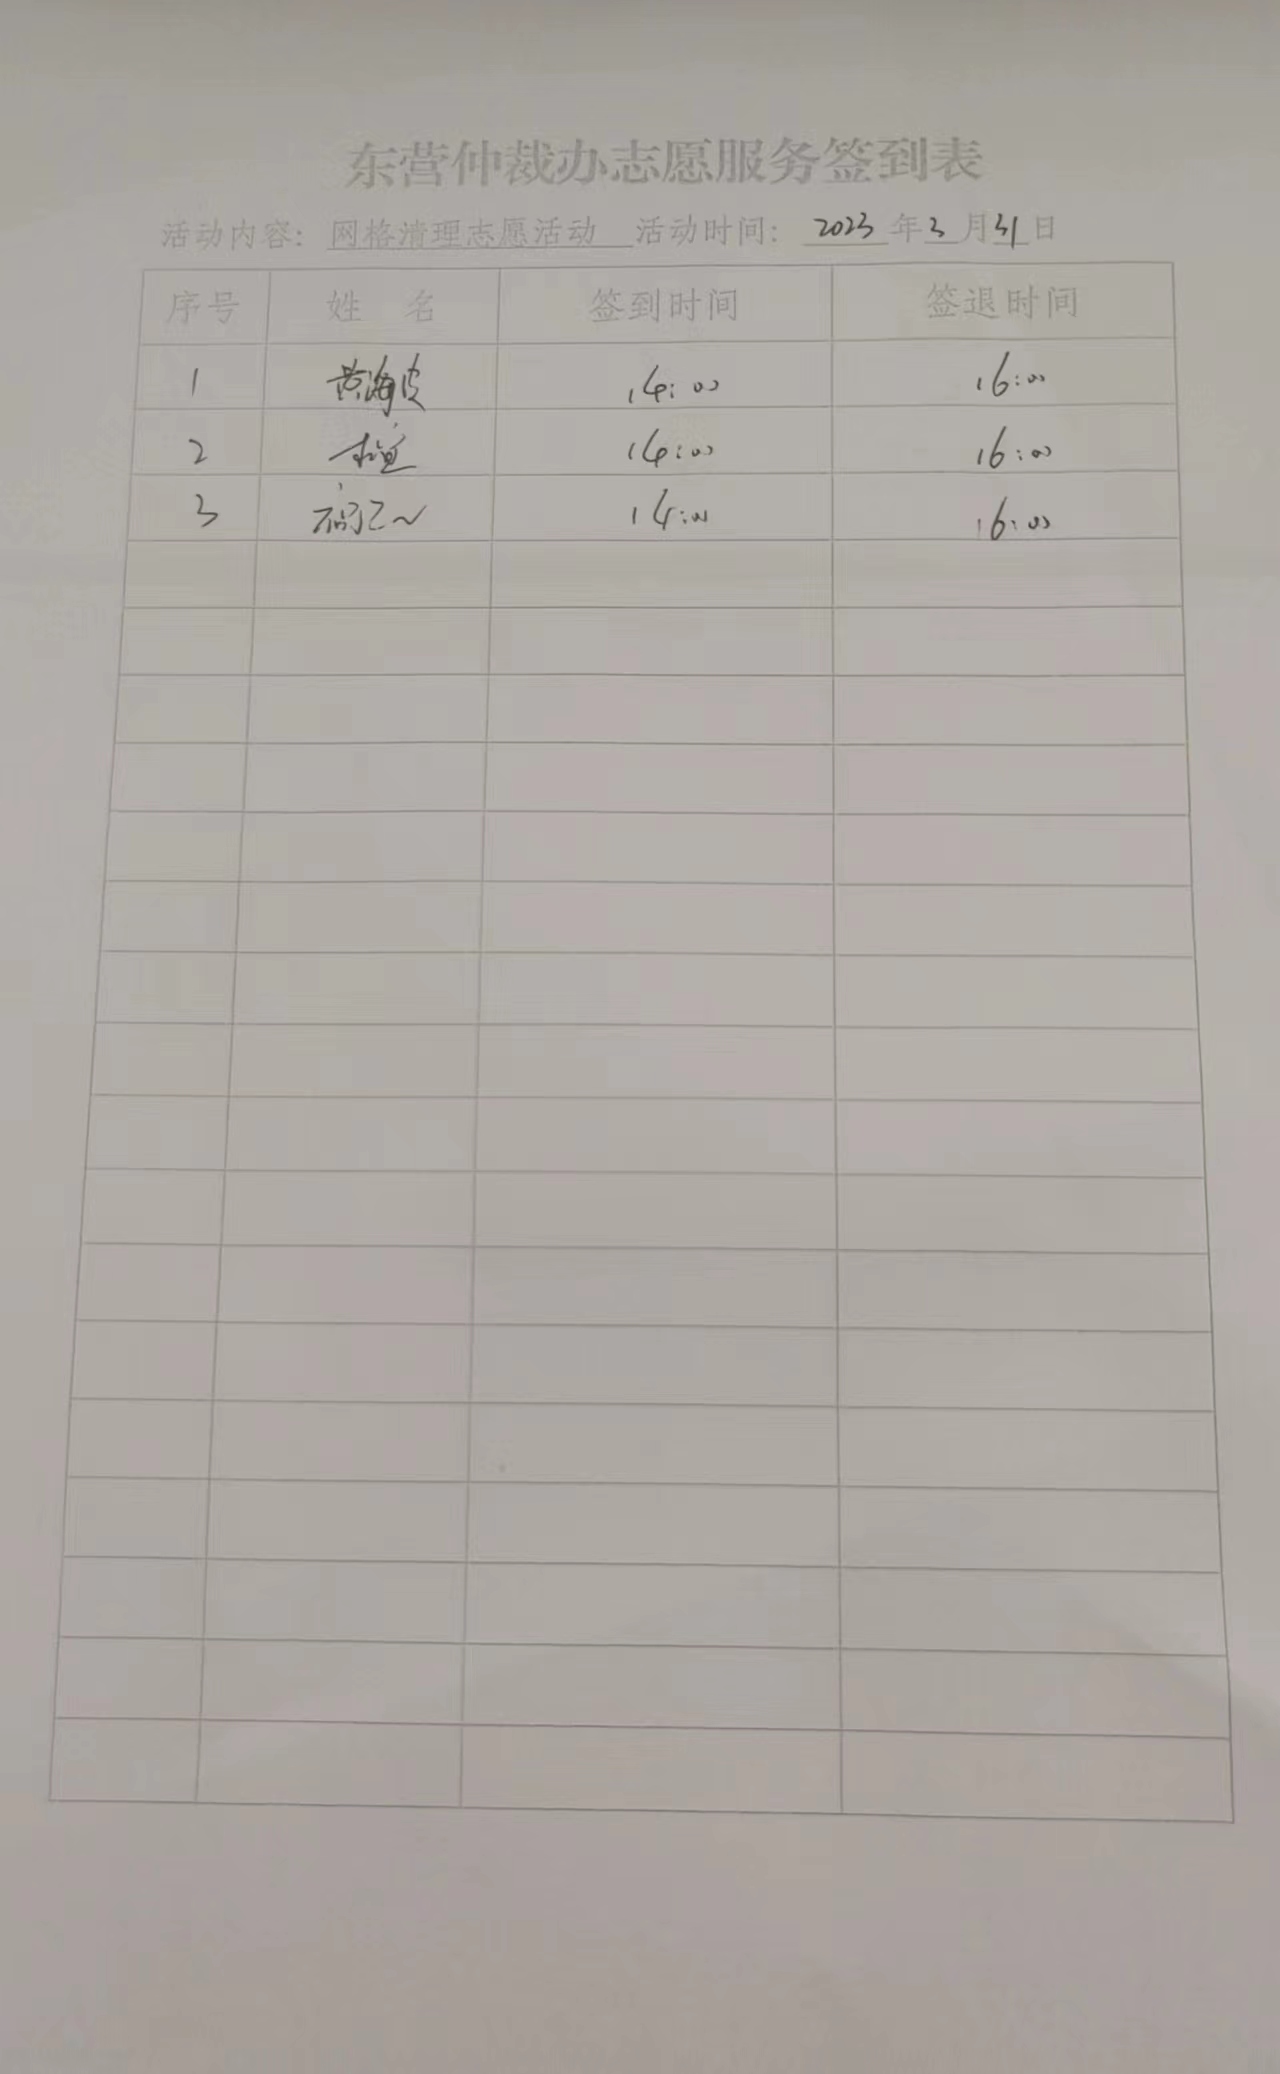 东营仲裁办志愿服务签到表
活动内容: 网格清理志愿活动 活动时间: 2023年3月31日
序号 姓 名 签到时间 签退时间
1 黄海波 14:00 16:00
2 14:00 16:00
3 14:00 16:00